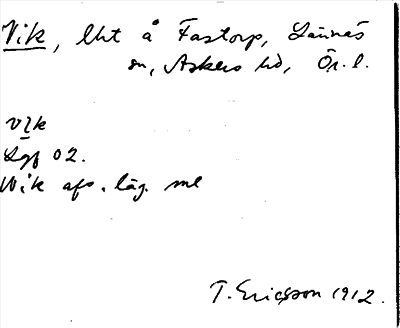 Vik, lht å Fastorp, Lännäs
sn, Askers hd, Ör. l.
vik
Lgf 02.
Wik afs. läg. ml
T. Ericsson 1912.